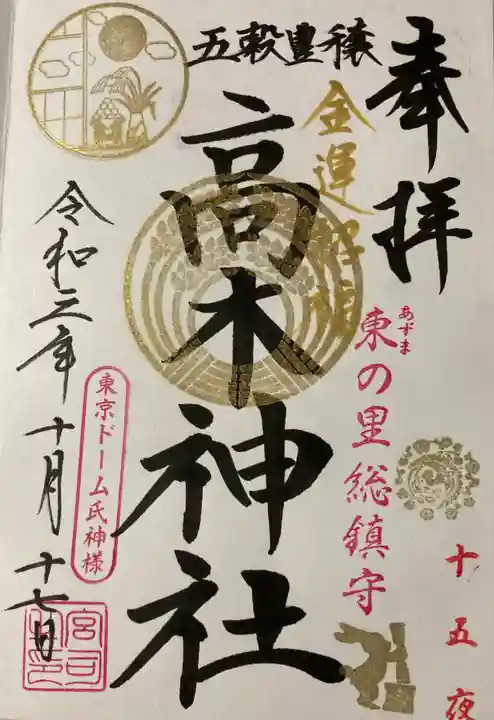 奉拝
五穀豊穣
金運招福
東の里総鎮守
あずま
十五夜
高木神社
東京ドーム氏神様
令和三年十月十七日
宮司